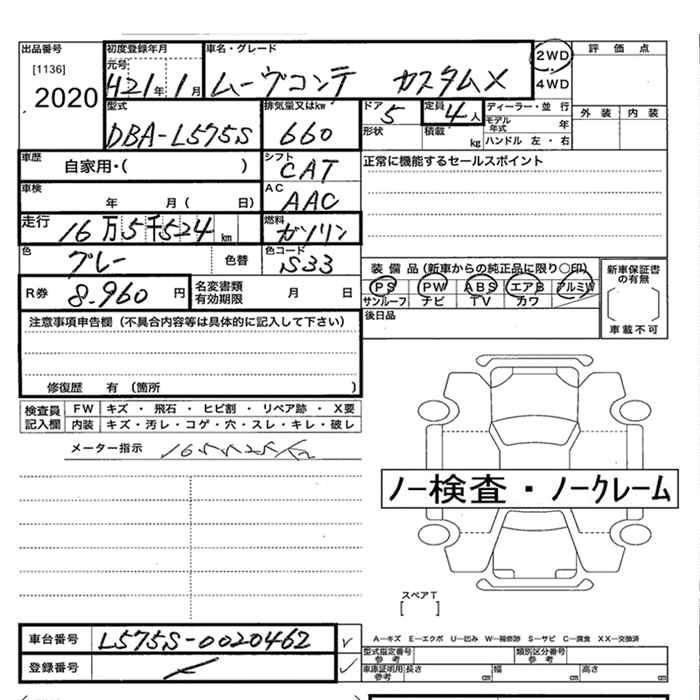 出品番号 初度登録年月 車名・グレード 2WD 評価点
[1136] 元号
2020 H21年 1月 ムーヴコンテ カスタムX 4WD
型式 排気量又はkw ドア 定員 ディーラー・並行 外装 内装
DBA-L575S 660 5 4人 モデル年式 年
形状 積載 kg ハンドル 左・右
車歴 自家用・( ) シフト CAT 正常に機能するセールスポイント
車検 年 月( 日) AC AAC
走行 16万5千524km 燃料 ガソリン
色 グレー 色替 色コード S33 装備品(新車からの純正品に限り○印) 新車保証書の有無
R券 8,960円 名変書類有効期限 月 日 PS PW ABS エアB アルミW
サンルーフ ナビ TV カワ
後日品 車載不可
注意事項申告欄(不具合内容等は具体的に記入して下さい)
修復歴 有(箇所 )
検査員記入欄 FW キズ・飛石・ヒビ割・リペア跡・X要
内装 キズ・汚レ・コゲ・穴・スレ・キレ・破レ
メーター指示
ノー検査・ノークレーム
スペアT
[ ]
車台番号 L575S-0020462
A―キズ E―エクボ U―凹み W―補修跡 S―サビ C―腐食 XX―交換済
登録番号
型式指定番号 参考 類別区分番号 参考
車庫証明用 参考 長さ cm 幅 cm 高さ cm